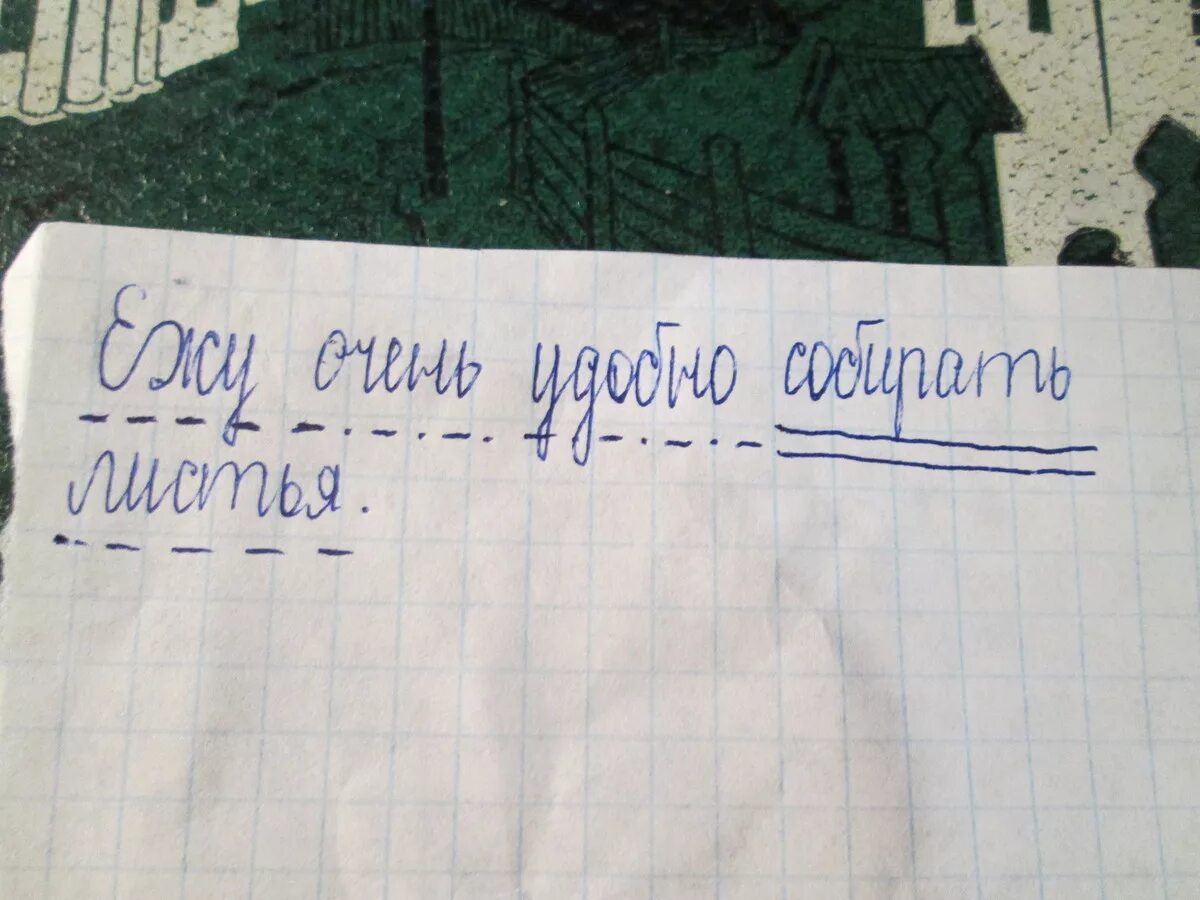 Ежу очень удобно собирать
листья.